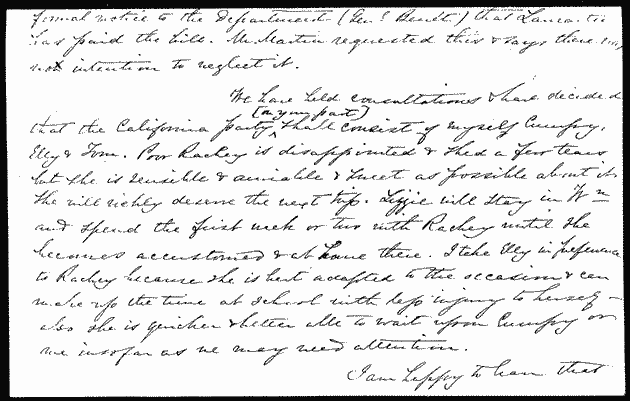 formal notice to the Department (Genl Benét.) that
has paid the bill. Mr. Martin requested this & says there was
not intention to neglect it.
We have held consultations & have decided
(on your part)
that the California party shall consist of myself Cumpy,
Elly & Tom. Poor Rachey is disappointed & shed a few tears
but she is sensible & amiable & sweet as possible about it
She will richly deserve the next trip. Lizzie will stay in Wn
and spend the first week or two with Rachey until she
becomes accustomed & at home there. I take Elly in preference
to Rachey because she is best adapted to the occasion & can
make up the time at School with less injury to herself –
also she is quicker & better able to wait upon Cumpy or
me insofar as we may need attention.
I am happy to learn that